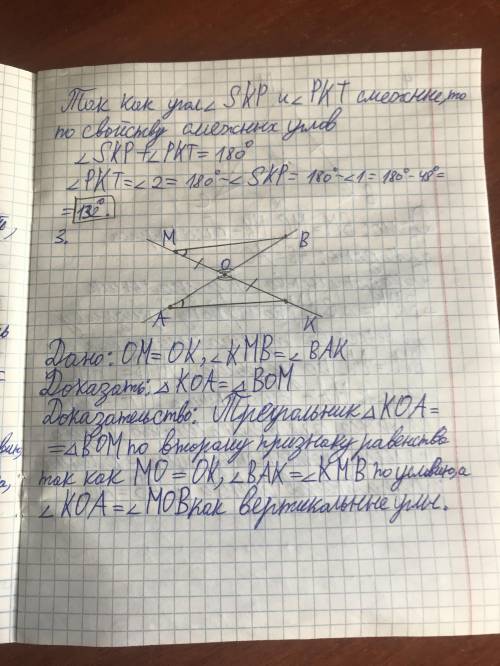 Так как угол ∠SKP и ∠PKT смежные, то
по свойству смежных углов
∠SKP + ∠PKT = 180°
∠PKT = ∠2 = 180° - ∠SKP = 180° - ∠1 = 180° - 48° =
= 132°.
3.
M
B
O
A
K
Дано: OM = OK, ∠KMB = ∠BAK
Доказать: △KOA = △BOM
Доказательство: Треугольник △KOA =
= △BOM по второму признаку равенства
так как MO = OK, ∠BAK = ∠KMB по условию, а
∠KOA = ∠MOB как вертикальные углы.